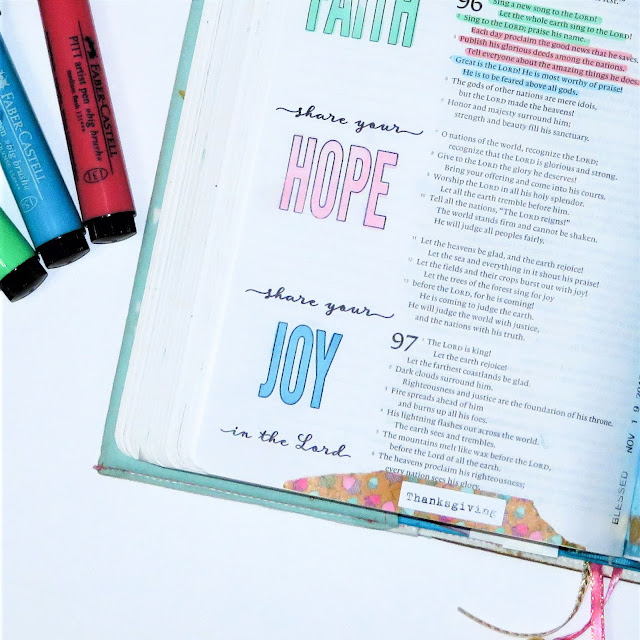 FABER-CASTELL
PITT artist pen »big brush«
FABER-CASTELL
»big brush«
FAITH
share your
HOPE
share your
JOY
in the Lord
96
Sing a new song to the LORD!
Let the whole earth sing to the LORD!
2 Sing to the LORD; praise his name.
Each day proclaim the good news that he saves.
3 Publish his glorious deeds among the nations.
Tell everyone about the amazing things he does.
4 Great is the LORD! He is most worthy of praise!
He is to be feared above all gods.
5 The gods of other nations are mere idols,
but the LORD made the heavens!
6 Honor and majesty surround him;
strength and beauty fill his sanctuary.
7 O nations of the world, recognize the LORD;
recognize that the LORD is glorious and strong.
8 Give to the LORD the glory he deserves!
Bring your offering and come into his courts.
9 Worship the LORD in all his holy splendor.
Let all the earth tremble before him.
10 Tell all the nations, "The LORD reigns!"
The world stands firm and cannot be shaken.
He will judge all peoples fairly.
11 Let the heavens be glad, and the earth rejoice!
Let the sea and everything in it shout his praise!
12 Let the fields and their crops burst out with joy!
Let the trees of the forest sing for joy
13 before the LORD, for he is coming!
He is coming to judge the earth.
He will judge the world with justice,
and the nations with his truth.
97
The LORD is king!
Let the earth rejoice!
Let the farthest coastlands be glad.
2 Dark clouds surround him.
Righteousness and justice are the foundation of his throne.
3 Fire spreads ahead of him
and burns up all his foes.
4 His lightning flashes out across the world.
The earth sees and trembles.
5 The mountains melt like wax before the LORD,
before the Lord of all the earth.
6 The heavens proclaim his righteousness;
every nation sees his glory.
Thanksgiving
BLESSED
NOV 19